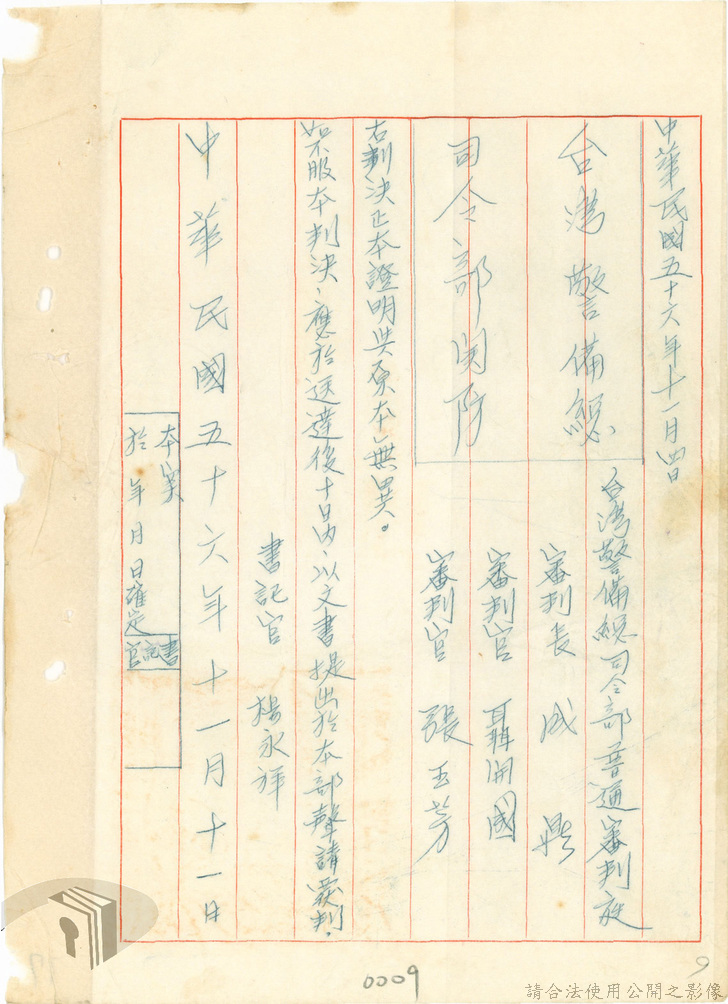 中華民國五十六年十一月四日
台灣警備總司令部普通審判庭
台灣警備總
司令部関防
審判長　成鼎
審判官　聶開國
審判官　張玉芳
右判決正本證明與原本無異。
如不服本判決，應於送達後十日內，以文書提出於本部聲請覆判。
書記官　楊永祥
中華民國五十六年十一月十一日
本案
於　年　月　日確定
書記官
0009
9
請合法使用公開之影像